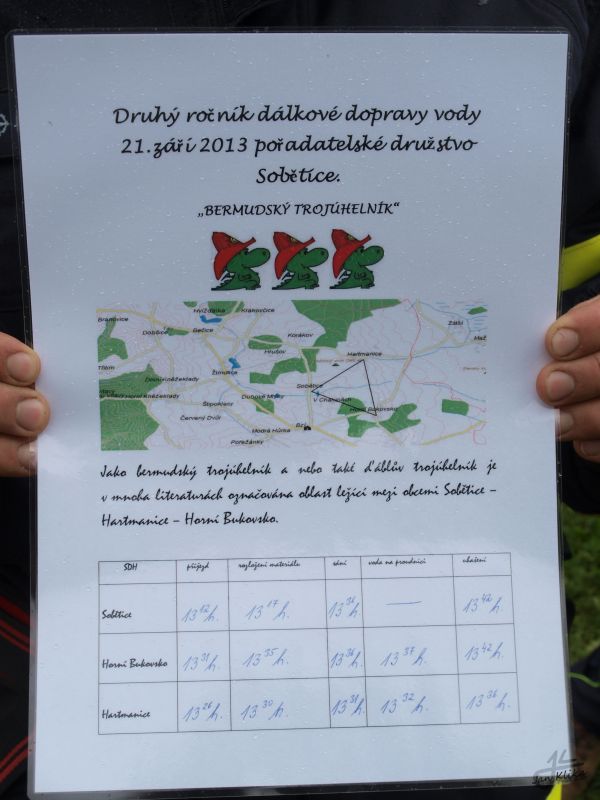 Druhý ročník dálkové dopravy vody
21.září 2013 pořadatelské družstvo
Sobětice.
„BERMUDSKÝ TROJÚHELNÍK“
Hvížďalka Krakovčice
Branovice
Dobšice Bečice
Korákov
Zálší
Hrušov
Hartmanice
Třitim
Žimutice
Dolní Kněžeklady
Sobětice
Horní Kněžeklady
Štipoklasy
V Chalupách
Horní Bukovsko
Červený Dvůr
Modrá Hůrka
Pořežánky
Jako bermudský trojúhelník a nebo také ďáblův trojúhelník je
v mnoha literaturách označována oblast ležící mezi obcemi Sobětice –
Hartmanice – Horní Bukovsko.
SDH příjezd rozložení materiálu sání voda na proudnici uhašení
Sobětice 13 12 h. 13 17 h. 13 36 h. — 13 42 h.
Horní Bukovsko 13 31 h. 13 35 h. 13 36 h. 13 37 h. 13 42 h.
Hartmanice 13 26 h. 13 30 h. 13 31 h. 13 32 h. 13 36 h.